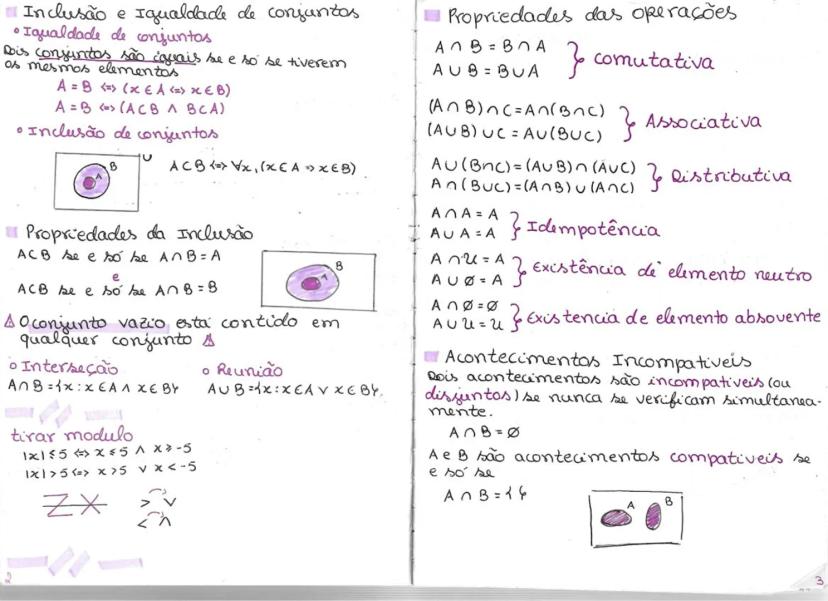 Inclusão e Igualdade de conjuntos
• Igualdade de conjuntos
Dois conjuntos são iguais se e só se tiverem
os mesmos elementos
A = B <=> (x ∈ A <=> x ∈ B)
A = B <=> (A ⊂ B ∧ B ⊂ A)
• Inclusão de conjuntos
U
B
A
A ⊂ B <=> ∀x, (x ∈ A => x ∈ B)
Propriedades da Inclusão
A ⊂ B se e só se A ∩ B = A
e
A ⊂ B se e só se A ∩ B = B
B
A
⚠ O conjunto vazio está contido em
qualquer conjunto ⚠
o Interseção
A ∩ B = {x : x ∈ A ∧ x ∈ B}
o Reunião
A ∪ B = {x : x ∈ A ∨ x ∈ B}
tirar modulo
|x| ≤ 5 <=> x ≤ 5 ∧ x ≥ -5
|x| > 5 <=> x > 5 ∨ x < -5
> ∨
< ∧
2
Propriedades das operações
A ∩ B = B ∩ A
A ∪ B = B ∪ A
} comutativa
(A ∩ B) ∩ C = A ∩ (B ∩ C)
(A ∪ B) ∪ C = A ∪ (B ∪ C)
} Associativa
A ∪ (B ∩ C) = (A ∪ B) ∩ (A ∪ C)
A ∩ (B ∪ C) = (A ∩ B) ∪ (A ∩ C)
} Distributiva
A ∩ A = A
A ∪ A = A
} Idempotência
A ∩ U = A
A ∪ Ø = A
} Existência de elemento neutro
A ∩ Ø = Ø
A ∪ U = U
} Existencia de elemento absovente
Acontecimentos Incompativeis
Dois acontecimentos são incompativeis (ou
disjuntos) se nunca se verificam simultanea-
mente.
A ∩ B = Ø
A e B são acontecimentos compativeis se
e só se
A ∩ B = { }
A
B
3